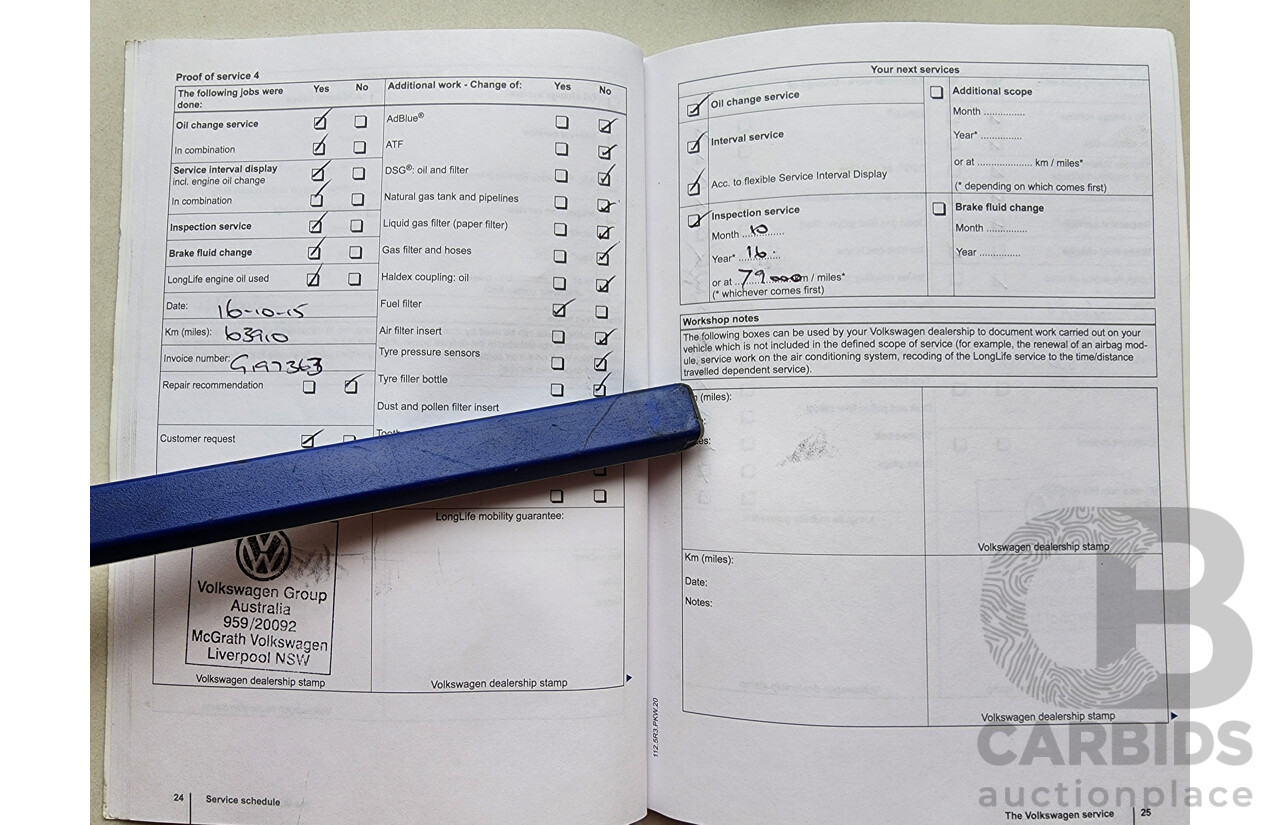 Proof of service 4
The following jobs were done: Yes No
Oil change service
In combination
Service interval display
incl. engine oil change
In combination
Inspection service
Brake fluid change
LongLife engine oil used
Date: 16-10-15
Km (miles): 63910
Invoice number: G197363
Repair recommendation
Customer request
Additional work - Change of: Yes No
AdBlue®
ATF
DSG®: oil and filter
Natural gas tank and pipelines
Liquid gas filter (paper filter)
Gas filter and hoses
Haldex coupling: oil
Fuel filter
Air filter insert
Tyre pressure sensors
Tyre filler bottle
Dust and pollen filter insert
Volkswagen Group
Australia
959/20092
McGrath Volkswagen
Liverpool NSW
Volkswagen dealership stamp
LongLife mobility guarantee:
Volkswagen dealership stamp
24 Service schedule
112.5R3.PKW.20
Your next services
Oil change service
Interval service
Acc. to flexible Service Interval Display
Inspection service
Month ... 10 ........
Year* ... 16 .
or at ... 79000 m / miles*
(* whichever comes first)
Additional scope
Month ..............
Year* ..............
or at .................... km / miles*
(* depending on which comes first)
Brake fluid change
Month ..............
Year ..............
Workshop notes
The following boxes can be used by your Volkswagen dealership to document work carried out on your
vehicle which is not included in the defined scope of service (for example, the renewal of an airbag mod-
ule, service work on the air conditioning system, recoding of the LongLife service to the time/distance
travelled dependent service).
(miles):
Volkswagen dealership stamp
Km (miles):
Date:
Notes:
Volkswagen dealership stamp
The Volkswagen service 25
CARBIDS
auctionplace